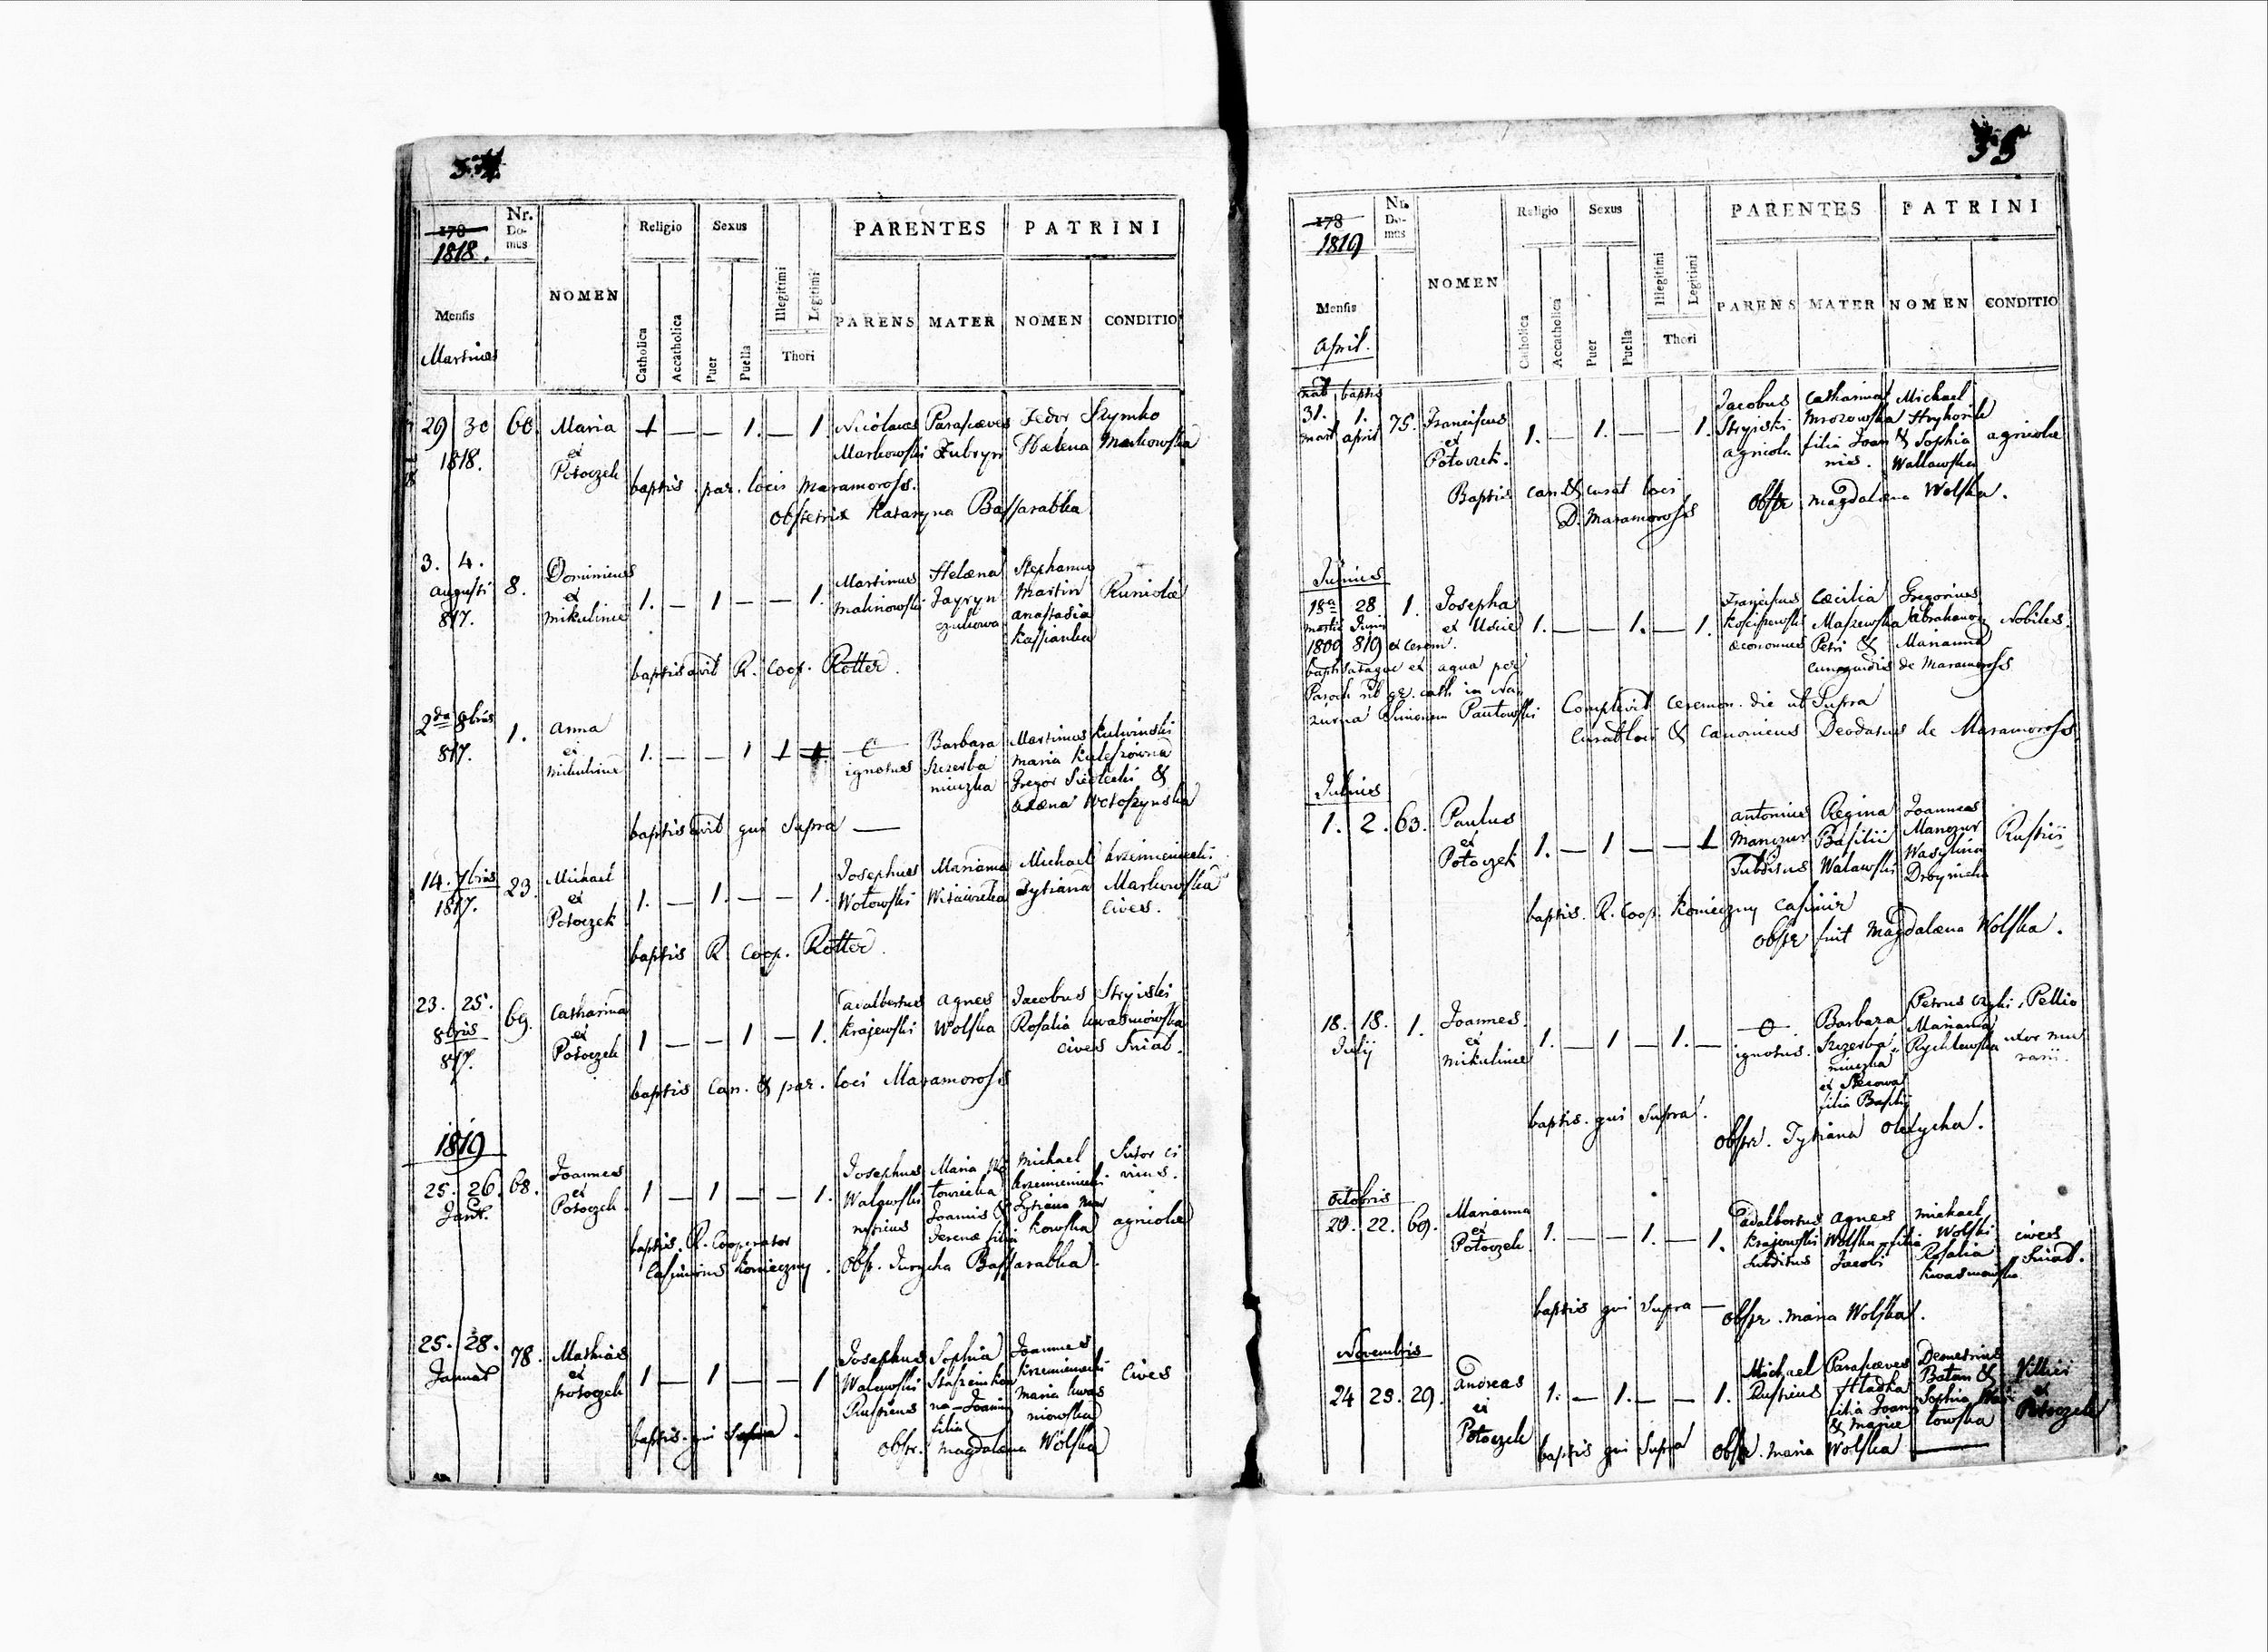 34
178
1818.
Nr.
Do-
mus
NOMEN
Religio
Sexus
PARENTES
PATRINI
Mensis
Martius
Catholica
Accatholica
Puer
Puella
Illegitimi
Legitimi
Thori
PARENS
MATER
NOMEN
CONDITIO
29 30 60. Maria 1 — — 1. — 1 Nicolaus Parasceves Fedor Szymko
1818. ex Markowski Zubryn Helena Markowska
Potoczek
baptis. par. locis Maramoross.
Obstetrix Kataryna Bassarabka
3. 4. Dominicus Martinus Helena Stephanus
Augusti 8. ex 1. — 1 — — 1. Malinowski Martin
817. Mikulince Anastadia
Kassianka
baptisavit R. Coop. Rotter.
2da 8bris Anna Barbara Martinus Kulwinski
817. 1. ex 1. — — 1 1 1 ignotus Szczerba Maria Kuleszowna
Mikulince niuczka Gregor Sietecki &
baptisavit qui Supra —
14. 7bris 23. Michael Josephus Marianna Michael Krzemieniecki
1817. ex 1. — 1. — — 1. Wolowski Tytiana Markowska
Potoczek cives.
baptis R. Coop. Rotter.
23. 25. 69. Catharina Adalbertus Agnes Jacobus Stryiski
8bris ex 1 — — 1 — 1. Krajewski Wolska Rosalia Kwasniowska
817. Potoczek cives Sniat.
baptis Can. & par. loci Maramoross
1819
25. 26. 68. Joannes Josephus Maria Wo Michael Sutor ci
Janr. ex 1 — 1 — — 1. Walawski towiecka Krzemieniecki vicus.
Potoczek Joannis & Tytiana Mar
filia kowska agricola
baptis. R. Cooperator
Casimirus Konieczny. Obst. Jurycha Bassarabka.
25. 28. 78. Mathias Josephus Sophia Joannes
Januar ex 1 — 1 — — 1 Walawski Krzemieniecki cives
Potoczek Rusticus na Joannis Maria Kwas
filia niowska
baptis. qui Supra. Obstr. Magdalena Wolska
35
178
1819
Nr.
Do-
mus
NOMEN
Religio
Sexus
PARENTES
PATRINI
Mensis
April.
Catholica
Accatholica
Puer
Puella
Illegitimi
Legitimi
Thori
PARENS
MATER
NOMEN
CONDITIO
nat baptis
31. 1. 75. Franciscus Jacobus Catharina Michael
Mart April ex 1. — 1. — — 1. Stryiski Mrozowska Hryhorik agricola
Potoczek. agricola. filia Joan & Sophia
nis. Wallawska
Baptis can & curat loci Obstr Magdalena Wolska.
D. Maramoross
Junius
18va 28 1. Josepha Franciscus Cæcilia Gregorius
Martii Junii ex Udie 1. — — 1. — 1. Maszewska Abrahamo Nobiles.
1809 819 et cerem. œconomus Petri & Marianna
Cunegundis de Maramoross
baptisataque ex aqua per
Paroch rit gr. cath. in
Simionem Pautowski Complevit ceremon. die ut Supra
Curat loci & canonicus Deodatus de Maramoross.
Julius
1. 2. 63. Paulus Antonius Regina Joannes
ex 1. — 1 — — 1 Manczur Basilii Manczur Rustici
Potoczek Subditus Walawski Wasylina
baptis. R. Coop. Konieczny Casimir
Obstr fuit Magdalæna Wolska.
18. 18. 1. Joannes Barbara Petrus Pellio
Julij ex 1. — 1 — 1. — ignotus. Szczerba- Marianna
Mikulince niuczka Rychlewska uxor mu
filia Basilij rarii.
baptis. qui Supra. Obstr. Tytiana
Octobris
20. 22. 69. Marianna Adalbertus Agnes Michael
ex 1. — — 1. — 1. Krajewski Wolska filia Wolski cives
Potoczek subditus Jacobi Rosalia Sniat.
Kwasniowska
baptis qui Supra — Obstr. Maria Wolska.
Novembris
24 25. 29. Andreas Michael Parasceves Demetrius
ex 1. — 1. — — 1. Rusticus Hladka Batan & Villici
Potoczek filia Joan Sophia ex
& Mariæ towska Potoczek
baptis qui Supra Obstr. Maria Wolska —